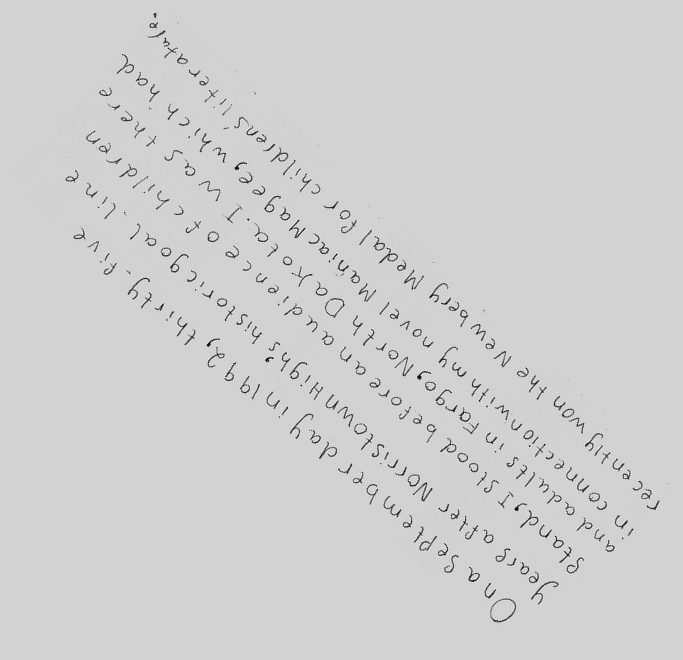 On a september day in 1992, thirty-five
years after Norristown High's historic goal-line
stand, I stood before an audience of children
and adults in Fargo, North Dakota. I was there
in connection with my novel Maniac Magee, which had
recently won the Newbery Medal for children's literature.